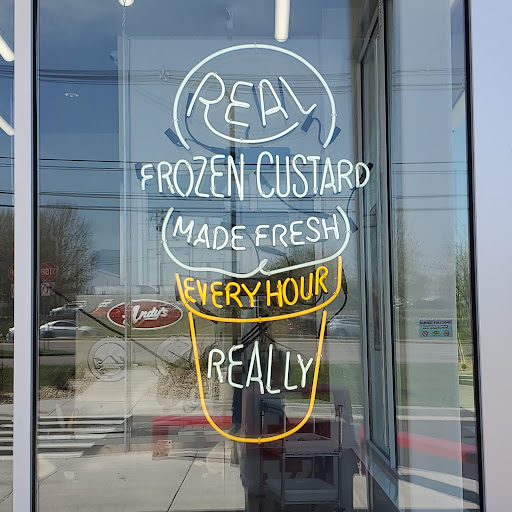 REAL
FROZEN CUSTARD
MADE FRESH
EVERY HOUR
Andy's
REALLY